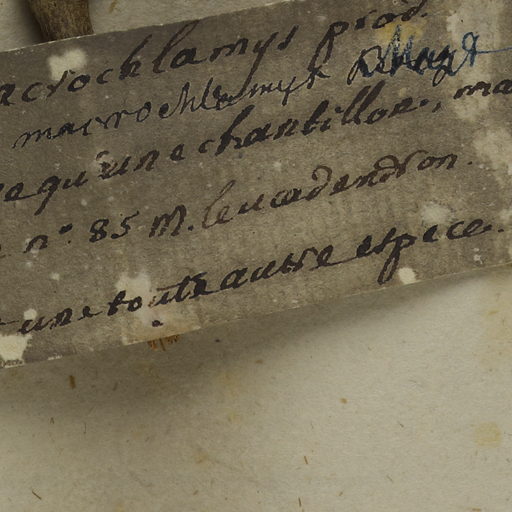 acrochlamys prod.
macrochlamys
equ'un echantillon, ma
n.° 85 M. leucadendron.
une toute autre espece.